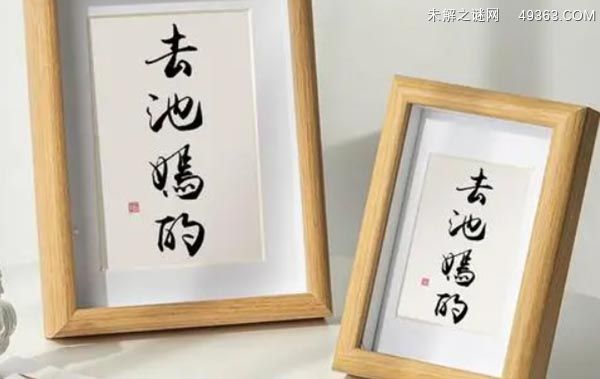 未解之谜网 49363.COM
去池媽的
去池媽的